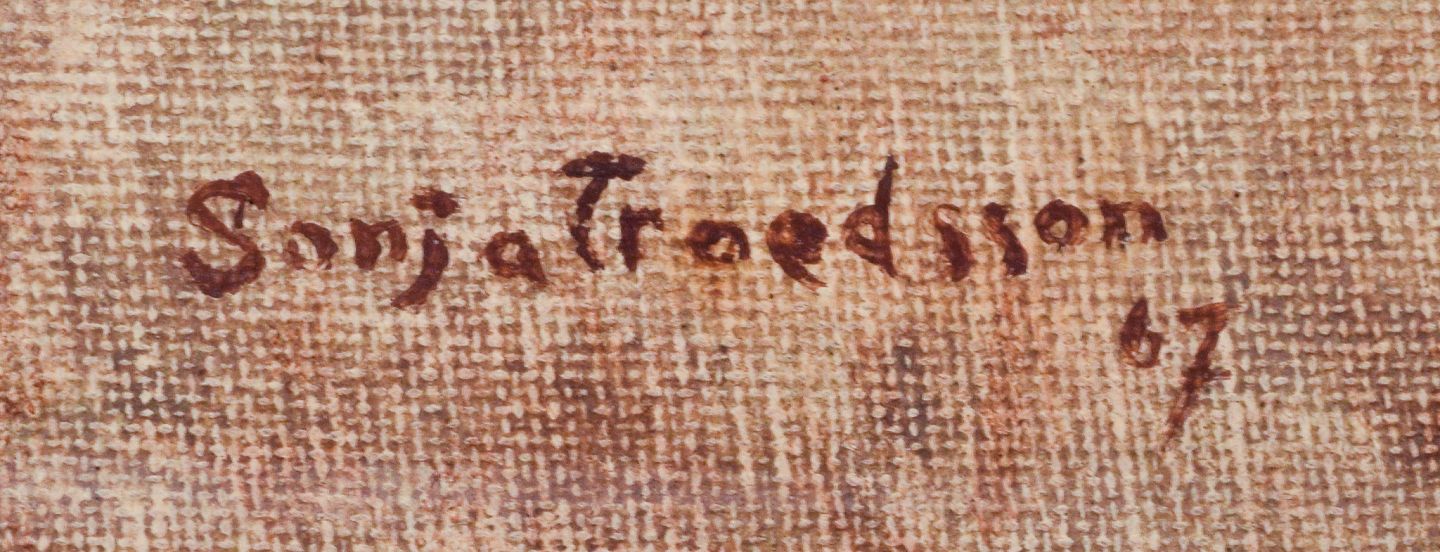 Sonja Troedsson
67